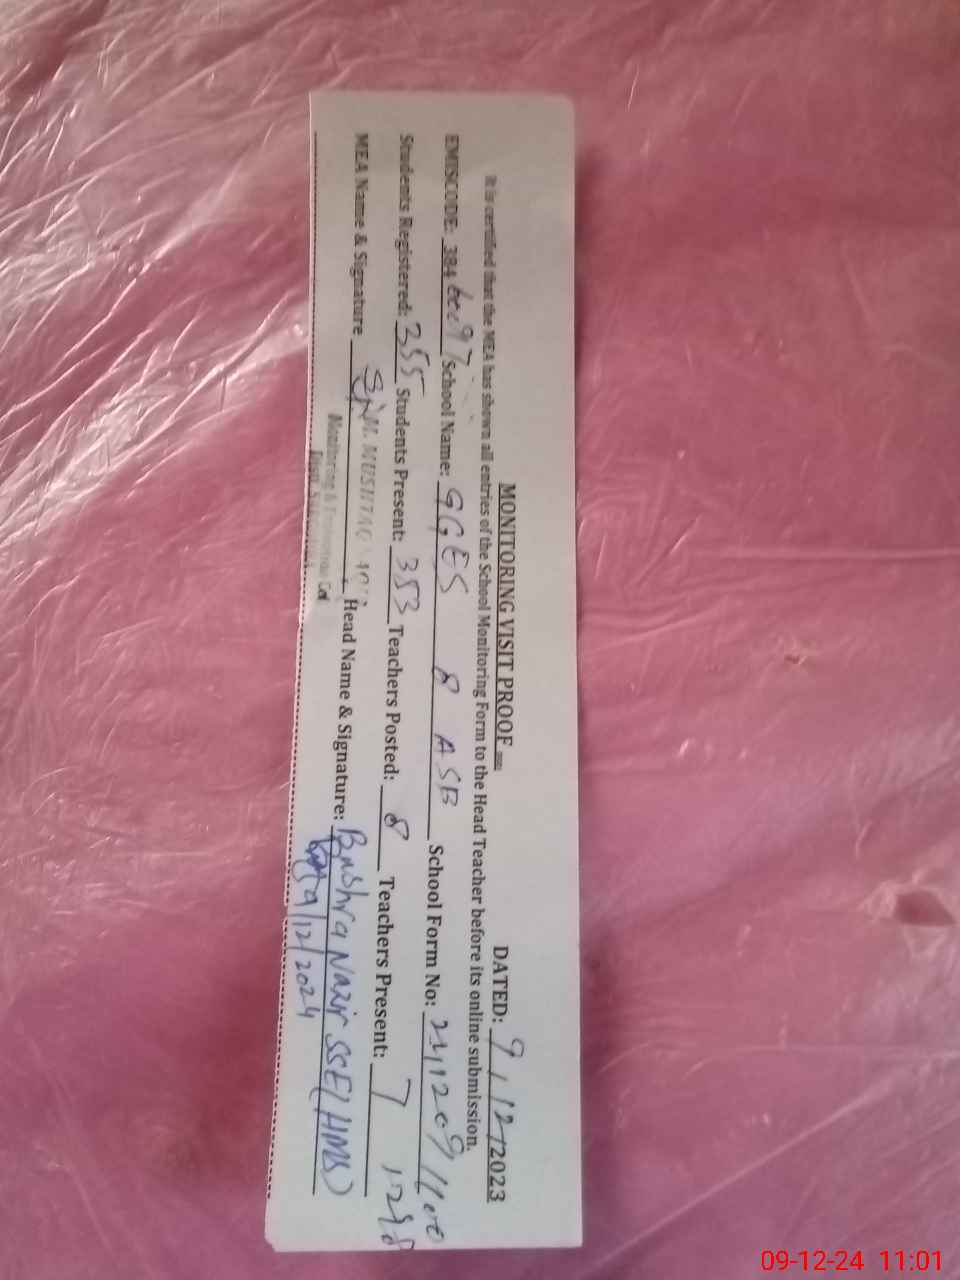 MONITORING VISIT PROOF
DATED: 9/12/2023
It is certified that the MEA has shown all entries of the School Monitoring Form to the Head Teacher before its online submission.
EMISCODE: 384 School Name: GGES 8 ASB School Form No:
Students Registered: 355 Students Present: 353 Teachers Posted: 8 Teachers Present: 7
MEA Name & Signature M. MUSHTAQ Head Name & Signature: Bushra Nazir SSE(HMS)
Monitoring &
9/12/2024
09-12-24 11:01